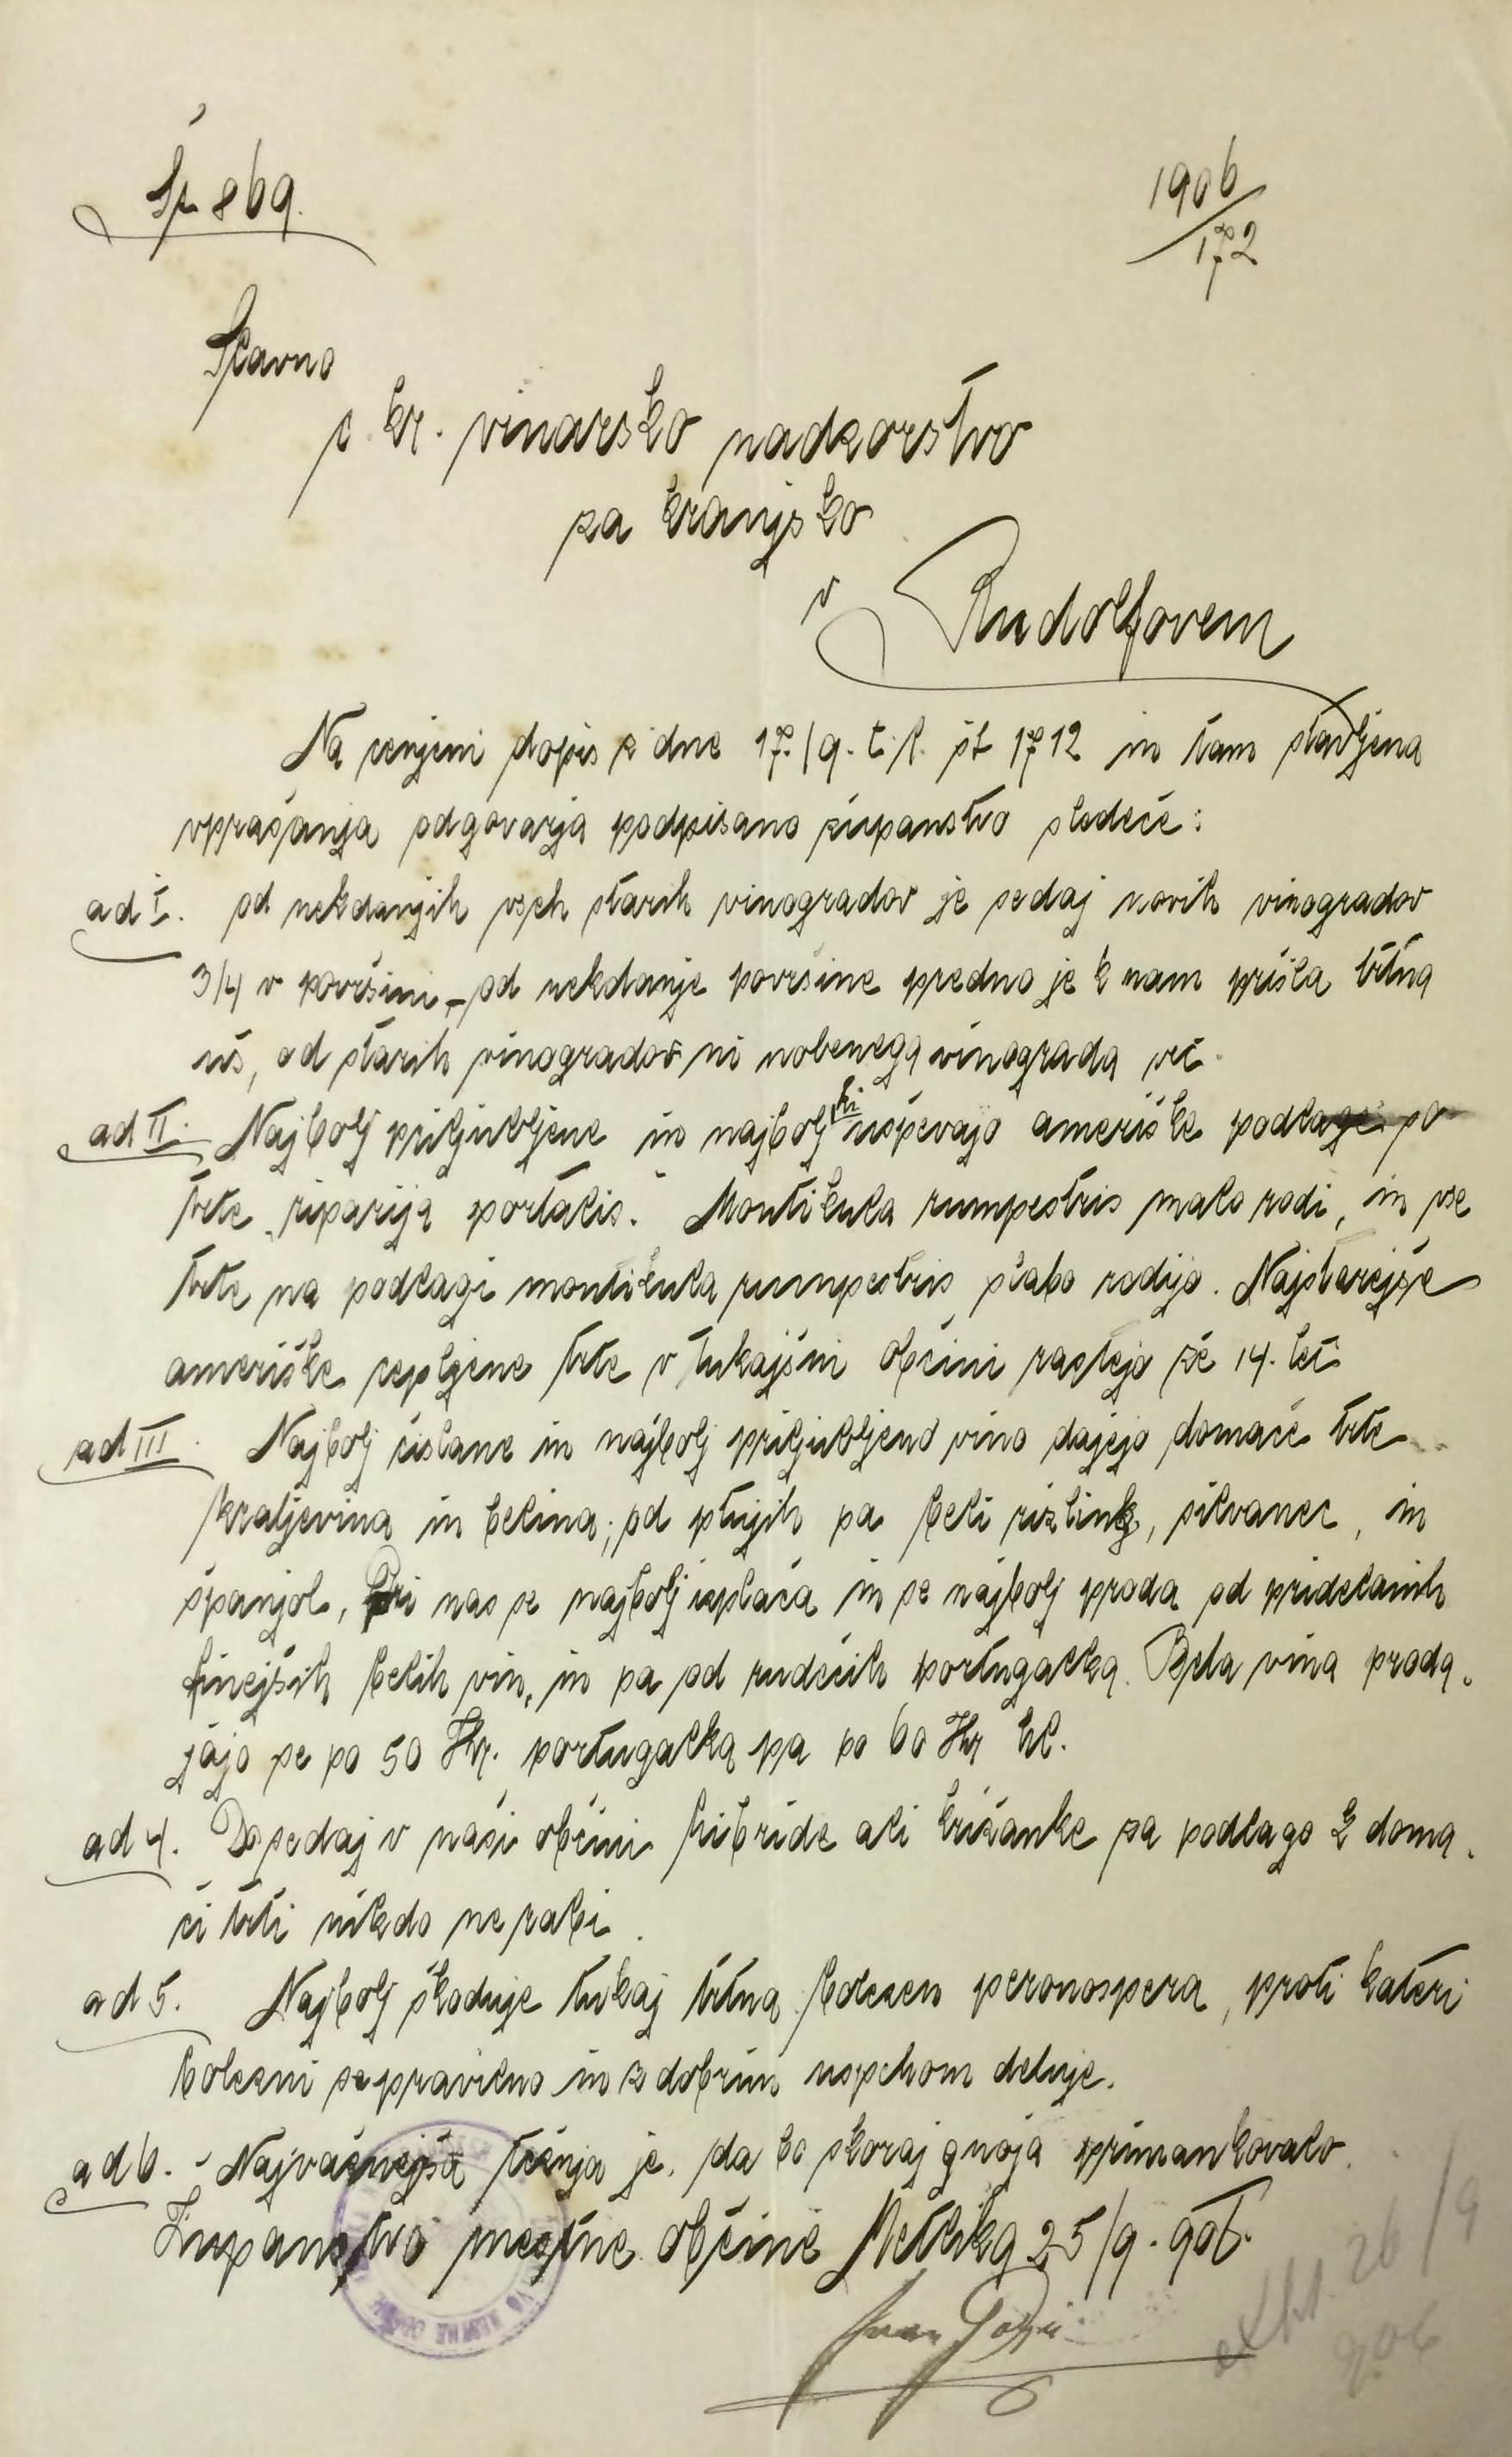 Št 869.
1906/172
Slavno
c. kr. vinarsko nadzorstvo
za kranjsko
v Rudolfovem
Na cenjeni dopis z dne 17./9. t. l. št 1712 in tam stavljena
vprašanja odgovarja podpisano županstvo sledeče:
ad I. od nekdanjih vseh starih vinogradov je sedaj novih vinogradov
3/4 v površini, od nekdanje površine predno je k nam prišla trtna
uš, od starih vinogradov ni nobenega vinograda več.
ad II. Najbolj priljubljene in najbolj ki uspevajo ameriške podlage po
trte riparija portalis. Montikula rumpestris malo rodi, in vse
trte na podlagi montikula rumpestris slabo rodijo. Najstarejše
ameriške cepljene trte v tukajšni občini rastejo že 14. let
ad III. Najbolj čislane in najbolj priljubljeno vino dajejo domače trte
kraljevina in belina; od ptujih pa beli rizling, silvanec, in
španjol, Pri nas se najbolj izplača in se najbolj proda od pridelanih
finejših belih vin, in pa od rudečih portugalka. Bela vina proda-
jajo se po 50 Kr. portugalka pa po 60 Kr hl.
ad 4. Do sedaj v naši občini hibride ali križanke za podlago k doma-
či trti nikdo ne rabi.
ad 5. Najbolj škoduje tukaj trtna bolezen peronospera, proti kateri
bolezni se pravilno in z dobrim uspehom deluje.
ad 6. Najvažnejša težnja je, da bo skoraj gnoja primankovalo.
Županstvo mestne občine Metlika 25/9. 906.
exh. 26/9
906